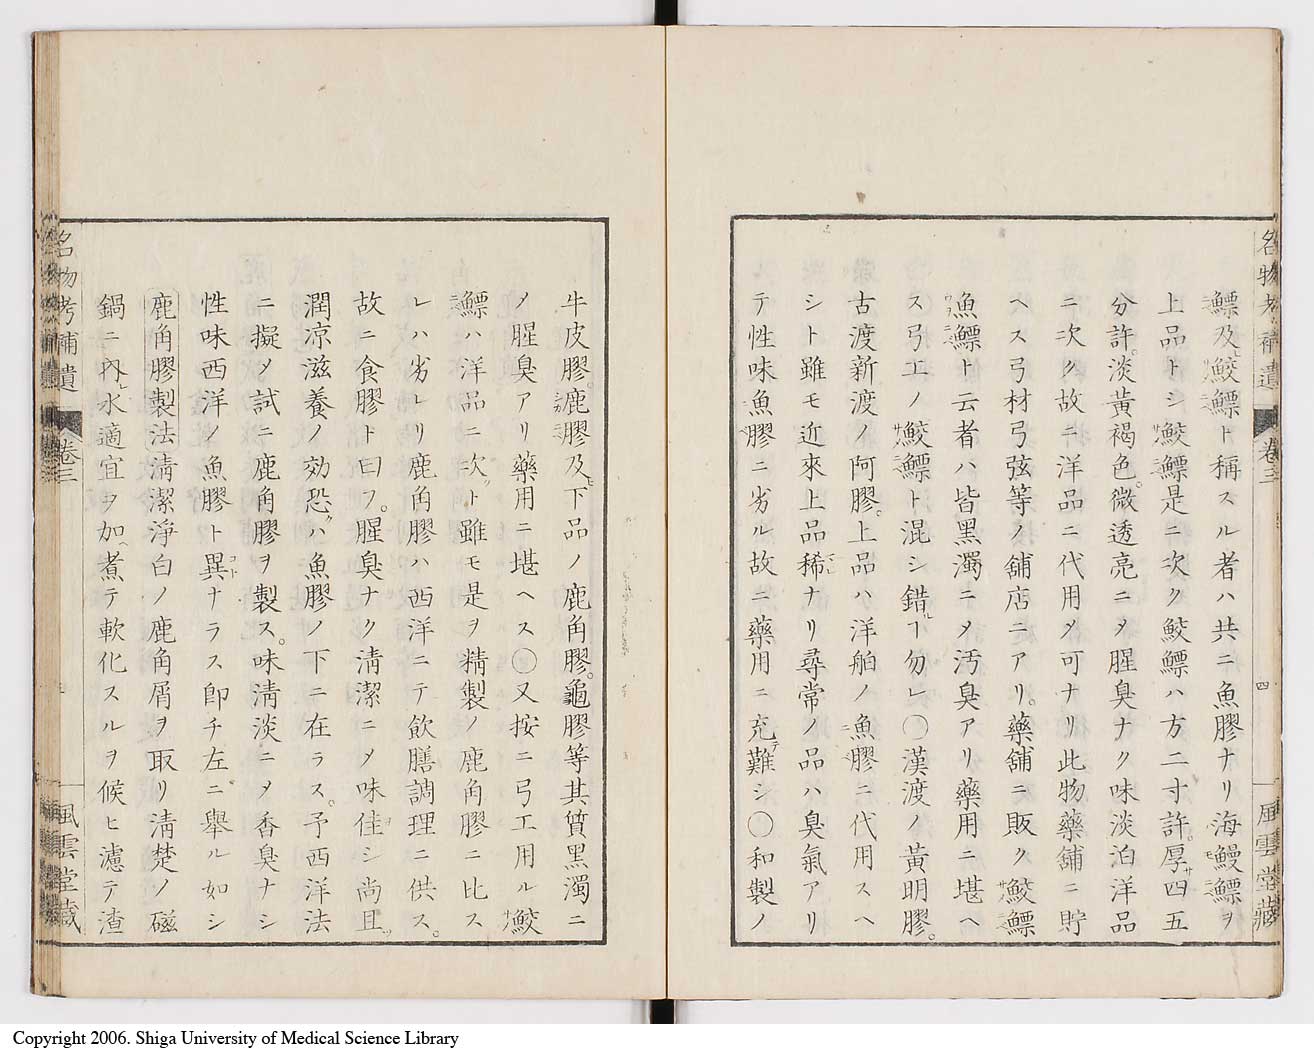 名物考補遺 卷三 四 風雲堂藏
鰾及鮫鰾ト稱スル者ハ共ニ魚膠ナリ海鰻鰾ヲ
上品トシ鮫鰾是ニ次ク鮫鰾ハ方二寸許。厚四五
分許。淡黃褐色。微透亮ニメ腥臭ナク味淡泊洋品
ニ次ク故ニ洋品ニ代用メ可ナリ此物藥鋪ニ貯
ヘス弓材弓弦等ノ鋪店ニアリ。藥鋪ニ販ク鮫鰾
魚鰾ト云者ハ皆黑濁ニメ汚臭アリ藥用ニ堪ヘ
ス弓工ノ鮫鰾ト混シ錯ルヿ勿レ〇漢渡ノ黃明膠。
古渡新渡ノ阿膠。上品ハ洋舶ノ魚膠ニ代用スヘ
シト雖モ近來上品稀ナリ尋常ノ品ハ臭氣アリ
テ性味魚膠ニ劣ル故ニ藥用ニ充難シ〇和製ノ
牛皮膠。鹿膠及下品ノ鹿角膠。龜膠等其質黑濁ニ
ノ腥臭アリ藥用ニ堪ヘス〇又按ニ弓工用ル鮫
鰾ハ洋品ニ次ト雖モ是ヲ精製ノ鹿角膠ニ比ス
レハ劣レリ鹿角膠ハ西洋ニテ飮膳調理ニ供ス。
故ニ食膠ト曰フ。腥臭ナク淸潔ニメ味佳シ尚且
潤涼滋養ノ効恐ハ魚膠ノ下ニ在ラス。予西洋法
ニ擬メ試ニ鹿角膠ヲ製ス。味淸淡ニメ香臭ナシ
性味西洋ノ魚膠ト異ナラス卽チ左ニ擧ル如シ
鹿角膠製法淸潔淨白ノ鹿角屑ヲ取リ淸楚ノ磁
鍋ニ內水適宜ヲ加煮テ軟化スルヲ候ヒ濾テ渣
名物考補遺 卷三 風雲堂藏
Copyright 2006. Shiga University of Medical Science Library